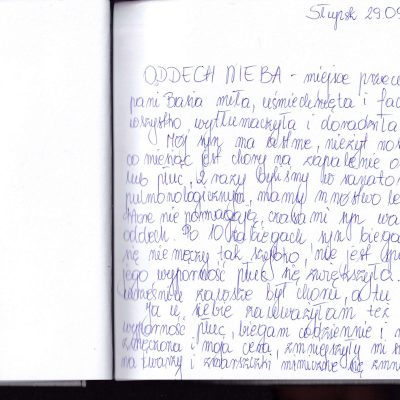 Słupsk 29.09
ODDECH NIEBA - miejsce przecu
pani Basia miła, uśmiechnięta i fac
wszystko wytłumaczyła i doradziła
Mój syn ma astmę, nieżyt nos
co miesiąc jest chory na zapalenie o
lub płuc, 2 razy byliśmy w sanator
pulmonologicznym, mamy mnóstwo le
które nie pomagają, czasami syn wa
oddech. Po 10 zabiegach syn biega
się nie męczy tak szybko, nie jest
jego wydolność płuc się zwiększyła.
wcześniej zawsze był chory, a tu
Ja u siebie zauważyłam też
wydolność płuc, biegam codziennie i
zachęcona i moja cera, zmniejszyły mi
na twarzy i zmarszczki mimiczne się zmn